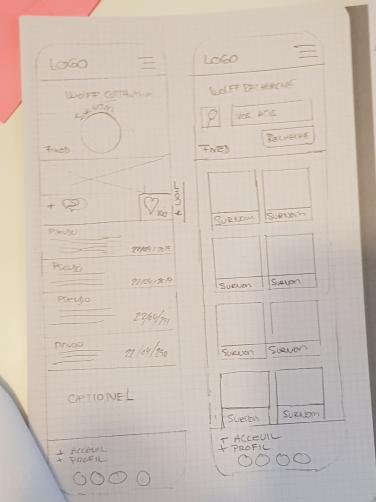 LOGO
WOLFF
FIXED
+
100
+ VOIR
PSEUDO
22/04/2019
PSEUDO
22/04/2019
PSEUDO
PSEUDO
OPTIONEL
+ ACCEUIL
+ PROFIL
LOGO
WOLFF RECHERCHE
VOS AMIS
RECHERCHE
FIXED
SURNOM SURNOM
SURNOM SURNOM
SURNOM SURNOM
SURNOM SURNOM
+ ACCEUIL
+ PROFIL